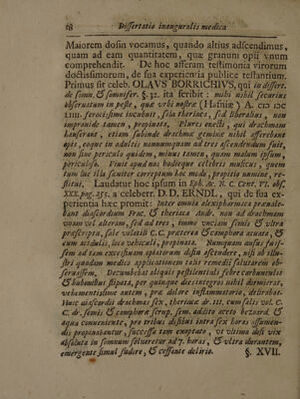 18 Dissertatio inauguralis medica
Maiorem dosin vocamus, quando altius adscendimus,
quam ad eam quantitatem, quæ granum opii vnum
comprehendit. De hoc afferam testimonia virorum
doctissimorum, de sua experientia publice testantium.
Primus sit celeb. OLAVS BORRICHIVS, qui in dissert.
de somn. & somnifer. §. 32. ita scribit: mihi nihil securius
obseruatum in peste, quæ vrbi nostræ (Hafniæ) A.
IIII. ferocissime incubuit, sola theriaca, sed liberalius, non
tamen, propinata. Plures euecti, qui drachmam
hauserant, etiam subinde drachmæ geminæ nihil afferebant
opis, eoque in adultis nonnunquam ad tres ascendendum fuit,
non sine periculo quidem, minus tamen, quem malum ipsum,
periculoso.
tum luc illa fuciter correptum hoc modo, propitio numine, re-
stitui. Laudatur hoc ipsum in Eph. ac. N. C. Cent. VI. obs.
XXX. pag. a celeberr. D. D. ERNDL, qui de sua ex-
perientia hæc promit: Inter omnia alexipharmaca præuale-
bant diascordium Frac. & theriaca Andr. non ad drachmam
vnam vel alteram, sed ad tres, immo vnciam semis & vltra
præscripta, sale volatili C.C. præterea & camphora acuata, &
cum acidulis, loco vehiculi, propinata. Nunquam ausus fuis-
sem ad tam excessiuam opiatorum dosin ascendere, nisi ab illu-
stri quodam medico applicationem talis remedii salutarem ob-
seruassem. Decumbebat aliquis pestilentiali febre carbunculis
& bubonibus stipata, per quinque dies integros nihil dormierat,
vehementissimo autem, pra dolore inflammatorio, delirabat.
Huic diascordii drachmas sex, theriacæ dr. III. cum salis vol. C.
C. dr. semis & camphoræ scrup. sem. addito aceto bezoard. &
aqua conueniente, pro tribus dosibus intra sex horas assumen-
dis propinabantur, successu tam exoptato, vt vltima dosi vix
absoluta in somnum solueretur ad 7. horas, & vltra durantem,
emergente simul sudore, & cessante delirio. §. XVII.